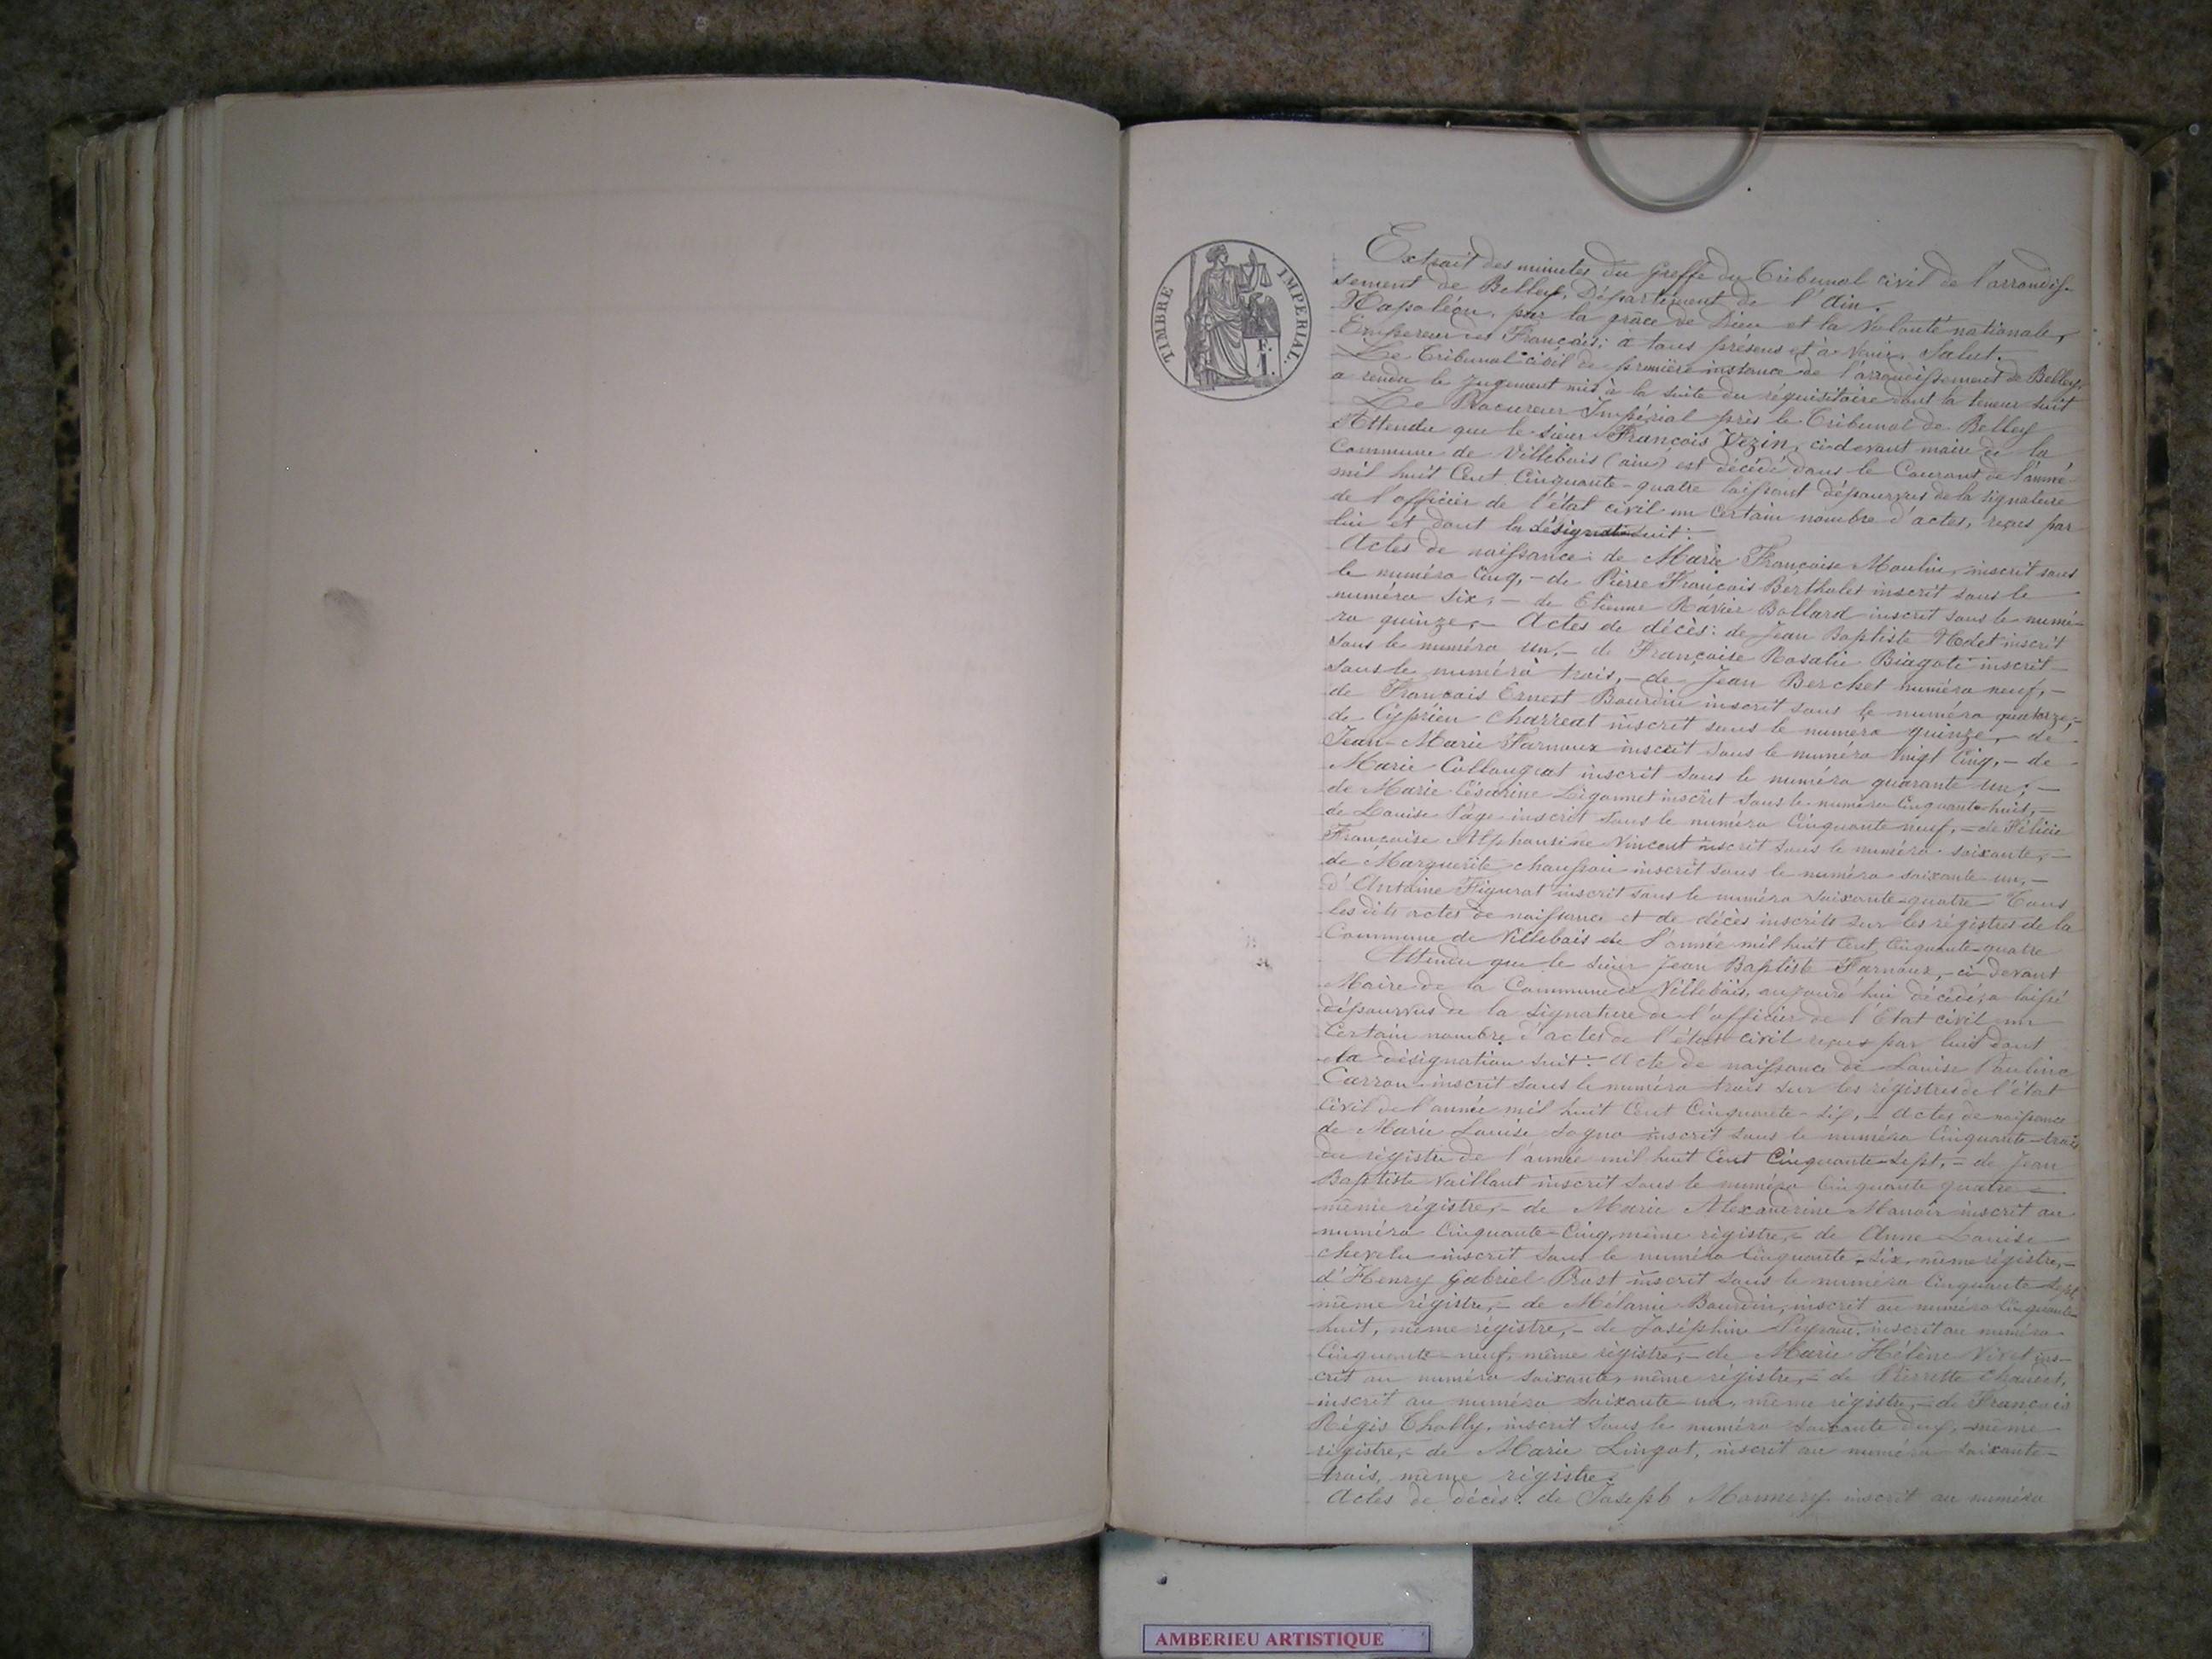 TIMBRE IMPERIAL.
F.
1.
Extrait des minutes du Greffe du Tribunal civil de l'arrondis-
sement de Belley, Département de l'Ain.
Napoléon, par la grâce de Dieu et la volonté nationale,
Empereur des Français; à tous présens et à venir, Salut.
Le Tribunal civil de première instance de l'arrondissement de Belley
a rendu le jugement mis à la suite du réquisitoire dont la teneur suit
Le Procureur Impérial près le Tribunal de Belley
Attendu que le sieur François Vezin, ci-devant maire de la
Commune de Villebois (ain) est décédé dans le Courant de l'année
mil huit Cent Cinquante-quatre laissant dépourvus de la signature
de l'officier de l'état civil un certain nombre d'actes, reçus par
lui et dont la désignation suit:
Actes de naissance: de Marie Françoise Moulin, inscrit sous
le numéro Cinq, - de Pierre François Berthelet inscrit sous le
numéro six; - de Etienne Xavier Bollard inscrit sous le numé-
ro quinze, - Actes de décès: de Jean Baptiste Nodet inscrit
sous le numéro un, - de Françoise Rosalie Biagoti inscrit
sous le numéro trois, - de Jean Berchet numéro neuf, -
de François Ernest Bourdin inscrit sous le numéro quatorze; -
de Cyprien Charreat inscrit sous le numéro quinze, - de
Jean-Marie Farnoux inscrit sous le numéro vingt Cinq, - de
Marie Collongeat inscrit sous le numéro quarante un; -
de Marie Césarine Ligonnet inscrit sous le numéro Cinquante-huit, -
de Louise Page inscrit sous le numéro Cinquante neuf, - de Félicie
Françoise Alphonsine Vincent inscrit sous le numéro soixante, -
de Marguerite inscrit sous le numéro soixante-un, -
d'Antoine Figurat inscrit sous le numéro soixante-quatre - Tous
les dits actes de naissance et de décès inscrits sur les régistres de la
Commune de Villebois de l'année mil huit Cent Cinquante-quatre
Attendu que le sieur Jean Baptiste Farnoux, ci-devant
Maire de la Commune de Villebois, aujourd'hui décédé, a laissé
dépourvus de la signature de l'officier de l'Etat civil un
Certain nombre d'actes de l'état civil reçus par lui dont
la désignation suit: Acte de naissance de Louise Pauline
Carron inscrit sous le numéro trois sur les régistres de l'état
Civil de l'année mil huit Cent Cinquante-six, - actes de naissance
de Marie Louise Sogno inscrit sous le numéro Cinquante-trois
du régistre de l'année mil huit Cent Cinquante-sept, - de Jean
Baptiste Vaillant inscrit sous le numéro Cinquante quatre
même régistre, - de Marie Alexandrine inscrit au
numéro Cinquante-Cinq, même régistre, - de Anne Louise
Chevelu inscrit sous le numéro Cinquante-six, même régistre, -
d'Henry Gabriel Prost inscrit sous le numéro Cinquante-sept
même régistre, - de Mélanie Bourdin, inscrit au numéro Cinquante-
huit, même régistre, - de Joséphine Peyraud, inscrit au numéro
Cinquante-neuf, même régistre, - de Marie Hélène Vivet ins-
crit au numéro soixante, même régistre, - de Pierrette
inscrit au numéro soixante-un, même régistre, - de François
Régis Thobly, inscrit sous le numéro soixante deux, même
régistre, - de Marie Lingot, inscrit au numéro soixante-
trois, même régistre.
Actes de décès: de Joseph Monnery inscrit au numéro
AMBERIEU ARTISTIQUE